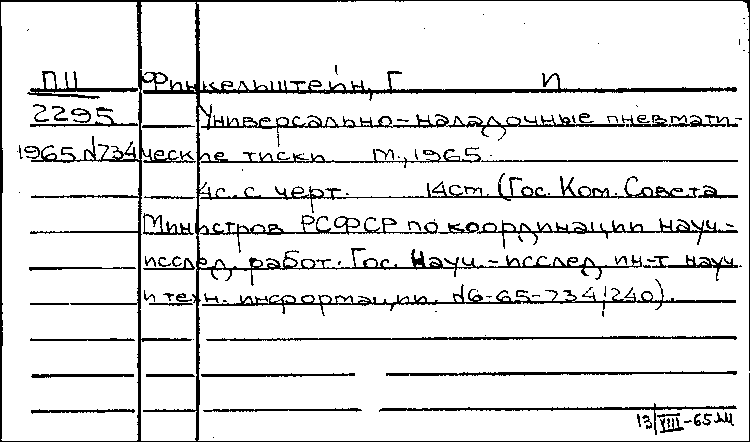 ПII Финкельштейн, Г И
2295 Универсально-наладочные пневмати-
1965 №734 ческие тиски. М., 1965.
4с. с черт. 14см. (Гос. Ком. Совета
Министров РСФСР по координации науч.-
исслед. работ. Гос. Науч.-исслед. ин-т науч.
и техн. информации. №6-65-734/240).
13/VIII-65